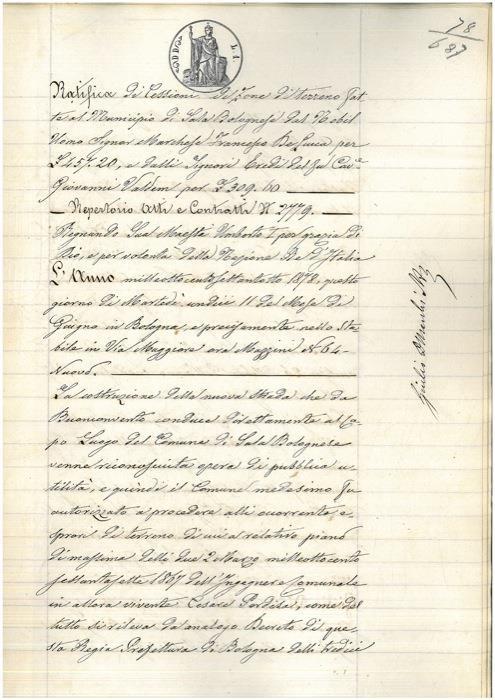 78
687
Ratifica di Cessioni di zone di terreno fat-
te al Municipio di Sala Bolognese dal Nobil
Uomo Signor Marchese Francesco De Luca per
£ 457.20, e dalli Signori Eredi del fu Cav.e
Giovanni Valdem per £ 309.60
Repertorio Atti e Contratti N. 2779.
Regnando Sua Maestà Umberto I per grazia di
Dio, e per volontà della Nazione Re d'Italia
L'Anno milleottocentosettantotto 1878, questo
giorno di Martedì undici 11 del Mese di
Giugno in Bologna, e precisamente nello sta-
bile in Via Maggiore ora Mazzini N. 64
Nuovo.
La costruzione della nuova strada che da
Buonconvento conduce direttamente al Ca-
po Luogo del Comune di Sala Bolognese
venne riconosciuta opera di pubblica u-
tilità, e quindi il Comune medesimo fu
autorizzato a procedere alli occorrenti e-
spropri di terreno di cui a relativo piano
di massima delli due 2 Marzo milleottocento
sessantasette 1867 dell'Ingegnere Comunale
in allora vivente Cesare Perdisa, come dal
tutto si rileva da analogo Decreto di que-
sta Regia Prefettura di Bologna delli tredici
Giulio Not.